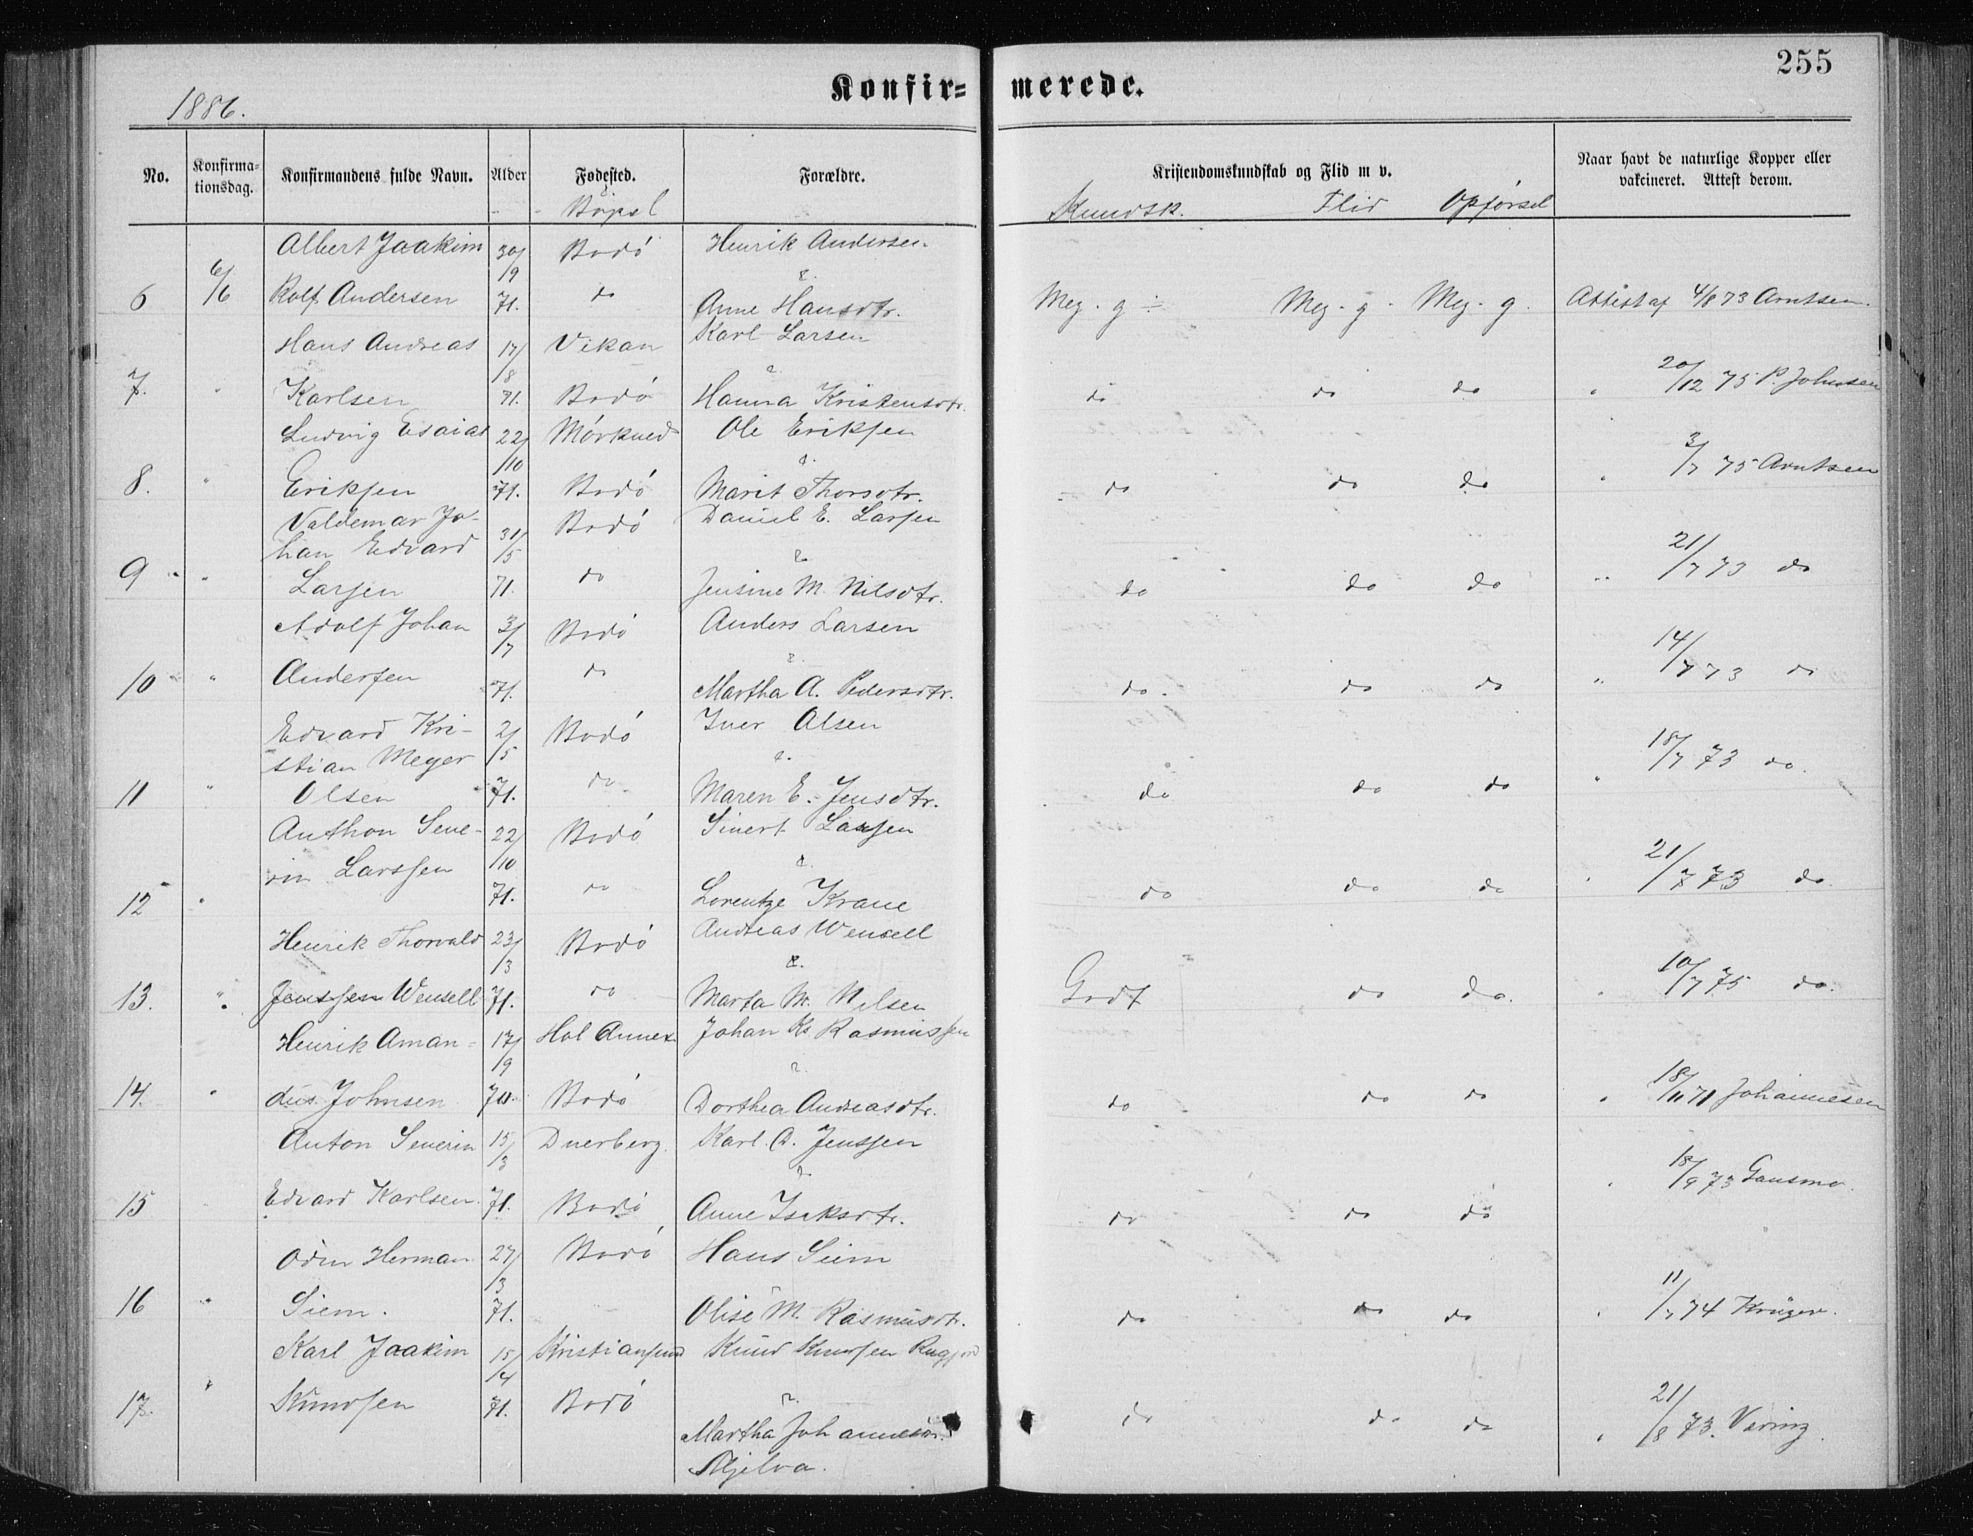 255
Konfir= merede.
1886.
No. Konfirma=tionsdag. Konfirmandens fulde Navn. Alder Fødested. Forældre. Kristendomskundskab og Flid m v. Naar havt de naturlige Kopper eller vakcineret. Attest derom.
Bopæl Kundsk. Flid Opførsel
Albert Joakim 30/9 Bodö Henrik Andersen
6 6/6 Rolf Andersen 71. do & Anne Hansdtr. Meg. g ÷ Meg. g. Meg. g. Attest af 4/8 73 Arntsen.
Hans Andreas 17/8 Vikan Karl Larsen
7. " Karlsen 71. Bodö & Hanna Kristensdtr. do do do " 20/12 75 P. Johnsen
Ludvig Esaias 22/10 Mörkved Ole Eriksen
8. " Eriksen 71. Bodö & Marit Thorsdtr. do do do " 3/7 75 Arntsen
Valdemar Jo-
han Edvard 31/5 Bodö Daniel E. Larsen
9 " Larsen 71. do & Jensine M. Nilsdtr. do do do " 21/7 73 do
Adolf Johan 3/7 Bodö Anders Larsen
10 " Andersen 71. do & Martha A. Pedersdtr. do. do do " 14/7 73 do
Edvard Kri- 2/5 Bodö Iver Olsen
stian Meyer
11 " Olsen 71. do & Maren E. Jensdtr. do do do " 18/7 73 do.
Anthon Seve- 22/10 Bodö Sivert Larsen
rin Larssen
12 " 71. do & Lorentze Krane do do do " 21/7 73 do.
Henrik Thorvald 23/3 Bodö Andreas Wensell
13. " Jenssen Wensell 71. do & Marta M. Nilsen Godt do do. " 10/7 75 do.
Henrik Aman- 17/9 Hol Annex Johan Ks Rasmussen
14. " dus Johnsen 70. Bodö & Dorthea Andreasdtr. do do do " 18/11 71 Johannesen
Anton Severin 15/3 Dverberg Karl A. Jenssen
15 Edvard Karlsen. 71. Bodö & Anne Isaksdtr. do do do " 18/9 73 Gausmo.
Odin Herman 27/3 Bodö Hans Siem
16 " Siem. 71. Olise M. Rasmusdtr. do do do " 11/7 74 Krüger.
Karl Joakim 15/4 Kristiansund Knud Knudsen
17. " Knudsen 71. Bodö & Martha Johannesdtr. do do do " 21/8 73. Vering.
Mjelva.